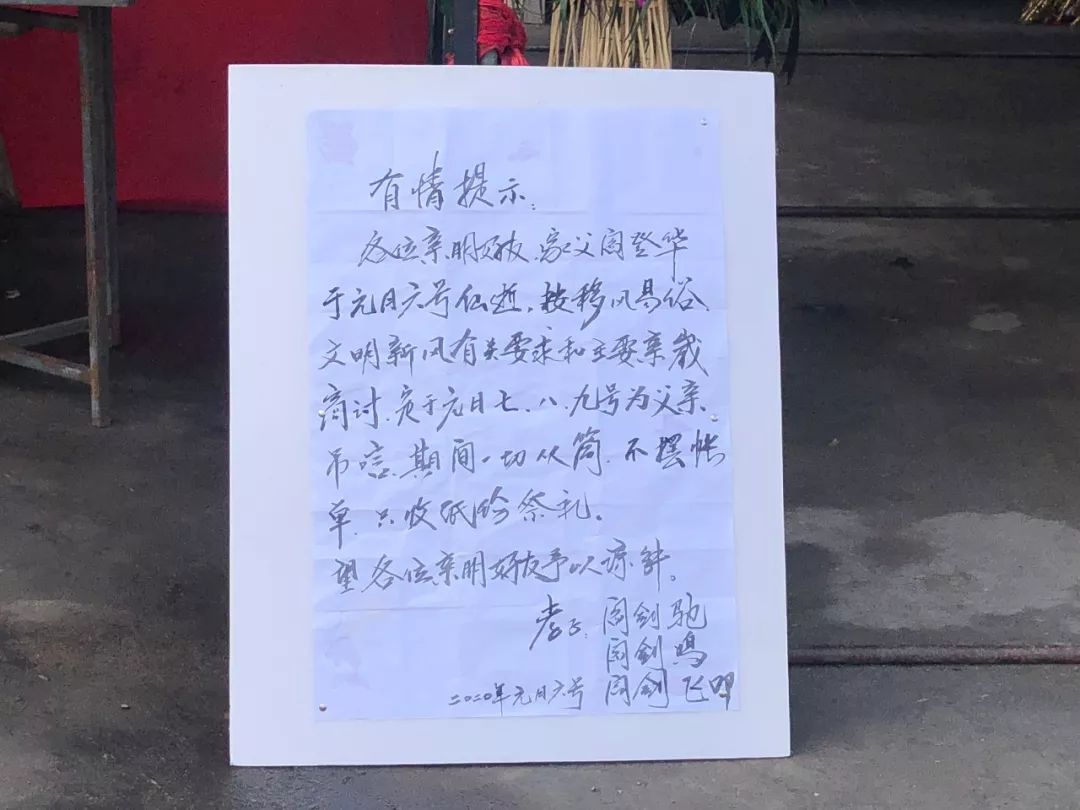 有情提示:
各位亲朋好友,家父阎登华
于元月六号仙逝,按移风易俗、
文明新风有关要求和主要亲戚
商讨,定于元月七、八、九号为父亲
吊唁,期间一切从简,不摆帐
单,只收纸 祭礼。
望各位亲朋好友予以谅解。
孝子:阎剑驰
阎剑鸣
二〇二〇年元月六号 阎剑飞叩